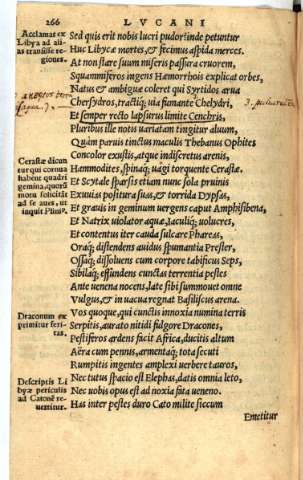 266 LVCANI
Acclamas ex
Libya ad ali-
as transisse re-
giones.
Cerastæ dicũ
tur qui cornua
habẽt quadri
gemina, quorũ
motu solicitãt
ad se aues, ut
inquit Plini⁹.
Draconum ex
primitur feri-
tas.
Descriptis Li
byæ periculis
ad Catonẽ re-
uertitur.
Sed quis erit nobis lucri pudor? inde petuntur
Huc Libycæ mortes, & fecimus aspida merces.
At non stare suum miseris passura cruorem,
Squammiferos ingens Hæmorrhois explicat orbes,
Natus & ambiguæ coleret qui Syrtidos arua
Chersydros, tractiq; uia fumante Chelydri,
Et semper recto lapsurus limite Cenchris,
Pluribus ille notis uariatam tingitur aluum,
Quàm paruis tinctus maculis Thebanus Ophites
Concolor exustis, atque indiscretus arenis,
Hammodites, spinaq; uagi torquente Cerastæ.
Et Scytale sparsis etiam nunc sola pruinis
Exuuias positura suas, & torrida Dypsas,
Et grauis in geminum uergens caput Amphisbena,
Et Natrix uiolator aquæ, Iaculiq; uolucres,
Et contentus iter cauda sulcare Phareas,
Oraq; distendens auidus spumantia Prester,
Ossaq; dissoluens cum corpore tabificus Seps,
Sibilaq; effundens cunctas terrentia pestes
Ante uenena nocens, late sibi summouet omne
Vulgus, & in uacua regnat Basiliscus arena.
Vos quoque, qui cunctis innoxia numina terris
Serpitis, aurato nitidi fulgore Dracones,
Pestiferos ardens facit Africa, ducitis altum
Aëra cum pennis, armentaq; tota secuti
Rumpitis ingentes amplexi uerbere tauros,
Nec tutus spacio est Elephas, datis omnia leto,
Nec uobis opus est ad noxia fata ueneno.
Has inter pestes duro Cato milite siccum
Emetitur